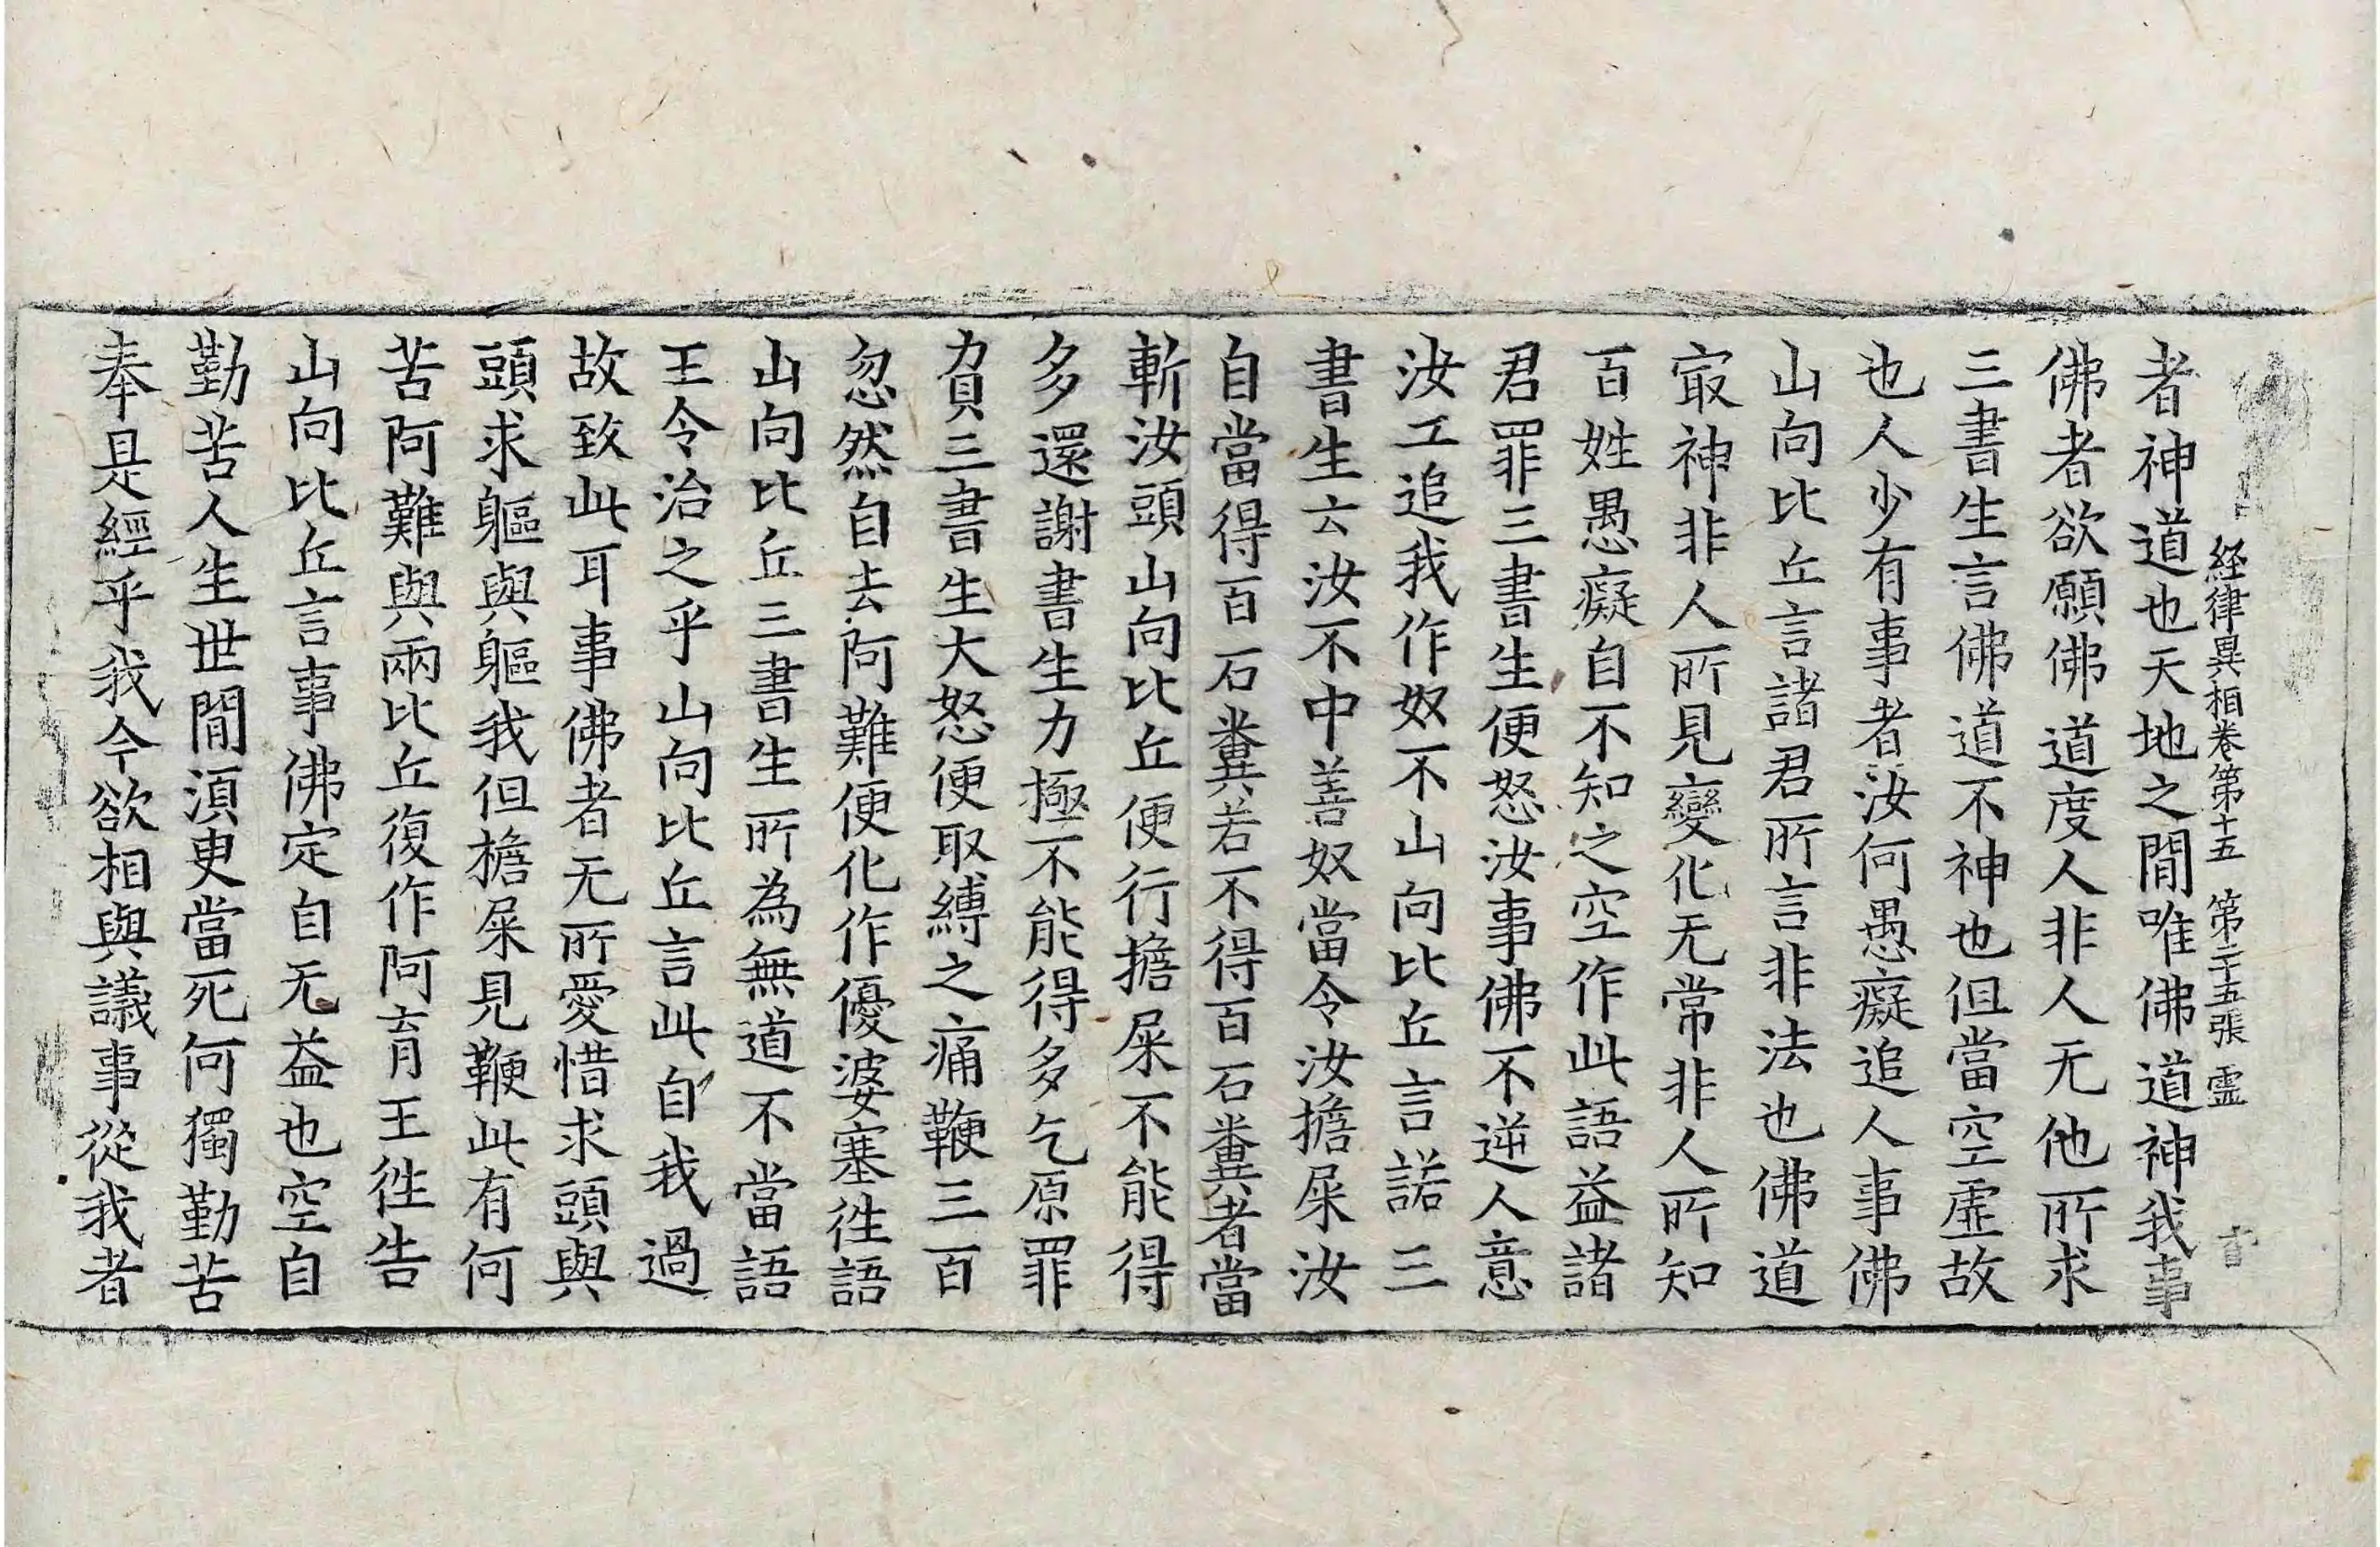 経律異相卷第十五 第二十五張 霊
者神道也天地之閒唯佛道神我事
佛者欲願佛道度人非人无他所求
三書生言佛道不神也但當空虛故
也人少有事者汝何愚癡追人事佛
山向比丘言諸君所言非法也佛道
㝡神非人所見變化无常非人所知
百姓愚癡自不知之空作此語益諸
君罪三書生便怒汝事佛不逆人意
汝工追我作奴不山向比丘言諾三
書生云汝不中善奴當令汝擔屎汝
自當得百石糞若不得百石糞者當
斬汝頭山向比丘便行擔屎不能得
多還謝書生力極不能得多乞原罪
負三書生大怒便取縛之痛鞭三百
忽然自去阿難便化作優婆塞徃語
山向比丘三書生所為無道不當語
王令治之乎山向比丘言此自我過
故致此耳事佛者无所愛惜求頭與
頭求軀與軀我但擔屎見鞭此有何
苦阿難與兩比丘復作阿育王徃告
山向比丘言事佛定自无益也空自
勤苦人生世閒湏更當死何獨勤苦
奉是經乎我今欲相與議事從我者